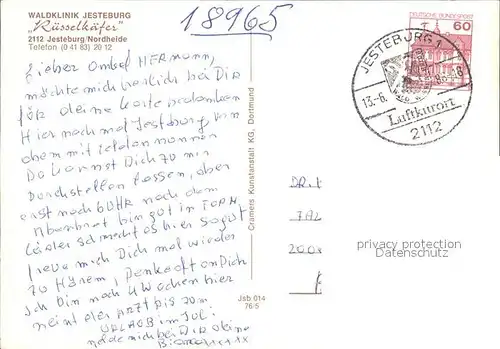 WALDKLINIK JESTEBURG
„Rüsselkäfer"
2112 Jesteburg/Nordheide
Telefon (0 41 83) 20 12
18965
Lieber Onkel HERmann,
möchte mich herlich bei DIR
für deine Karte bedanken
Hier noch mal Jesteburg von
ohem mit telefonnonner
Do kannst Dich zo mir
Dorchstellen lassen, aber
erst noch 6 UHR nach dem
Abenbrot bin gut in FORM,
Leider schmeckt es hier so gut
freue mich Dich mal wieder
zo Hören, Denke oft an Dich
Ich bin noch 4 Wochen hier
meint der ARZT bis zom
URLAUB im Joli
melde mich bei DIR
Cramers Kunstanstalt KG, Dortmund
Jsb 014
76/5
DEUTSCHE BUNDESPOST
60
JESTEBURG 1
13.-6.
Luftkurort
2112
privacy protection
Datenschutz